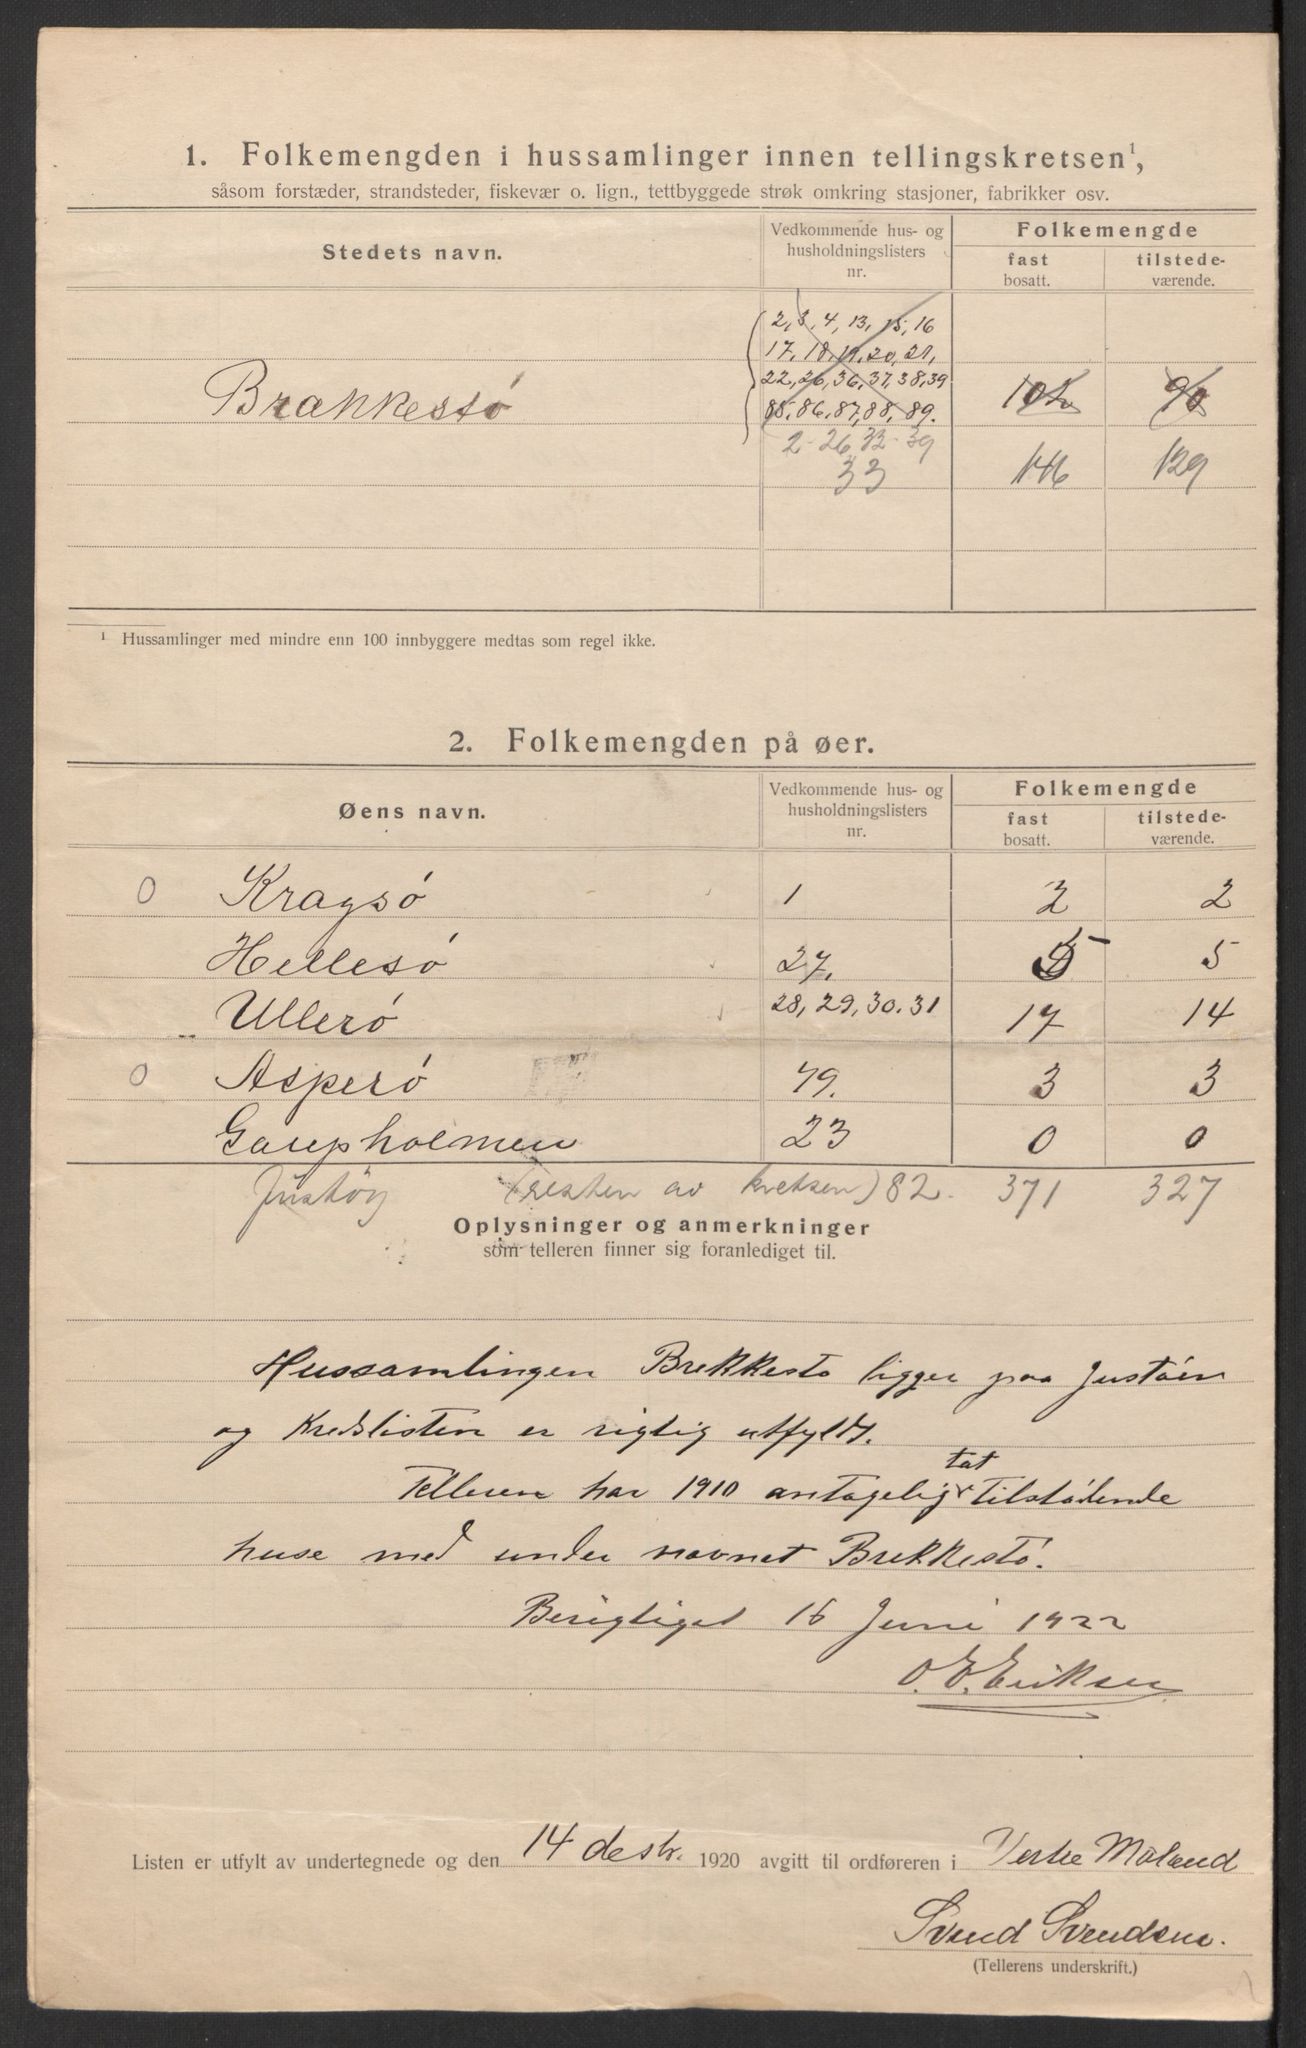 1. Folkemengden i hussamlinger innen tellingskretsen¹,
såsom forstæder, strandsteder, fiskevær o. lign., tettbyggede strøk omkring stasjoner, fabrikker osv.
Stedets navn.
Vedkommende hus- og husholdningslisters nr.
Folkemengde
fast bosatt.
tilstede-værende.
2, 3, 4, 13, 15, 16
17, 18, 19, 20, 21,
22, 26, 36, 37, 38, 39
Brækkestø 85, 86, 87, 88, 89. 102 90
2-26, 32-39
33 146 129
¹ Hussamlinger med mindre enn 100 innbyggere medtas som regel ikke.
2. Folkemengden på øer.
Øens navn.
Vedkommende hus- og husholdningslisters nr.
Folkemengde
fast bosatt.
tilstede-værende.
0 Kragsø 1 2 2
Hellesø 27. 5 5
Ullerø 28, 29, 30, 31 17 14
0 Asperø 79. 3 3
Gaupholmen 23 0 0
Justøy (resten av kretsen) 82. 371 327
Oplysninger og anmerkninger
som telleren finner sig foranlediget til.
Hussamlingen Brekkestø ligger paa Justøen
og Kredslisten er rigtig utfyldt.
Telleren har 1910 antagelig tat tilstødende
huse med under navnet Brekkestø.
Berigtiget 16 Juni 1922
O. E. Eriksen
Listen er utfylt av undertegnede og den 14 desbr. 1920 avgitt til ordføreren i Vestre Moland
Svend Svendsen.
(Tellerens underskrift.)